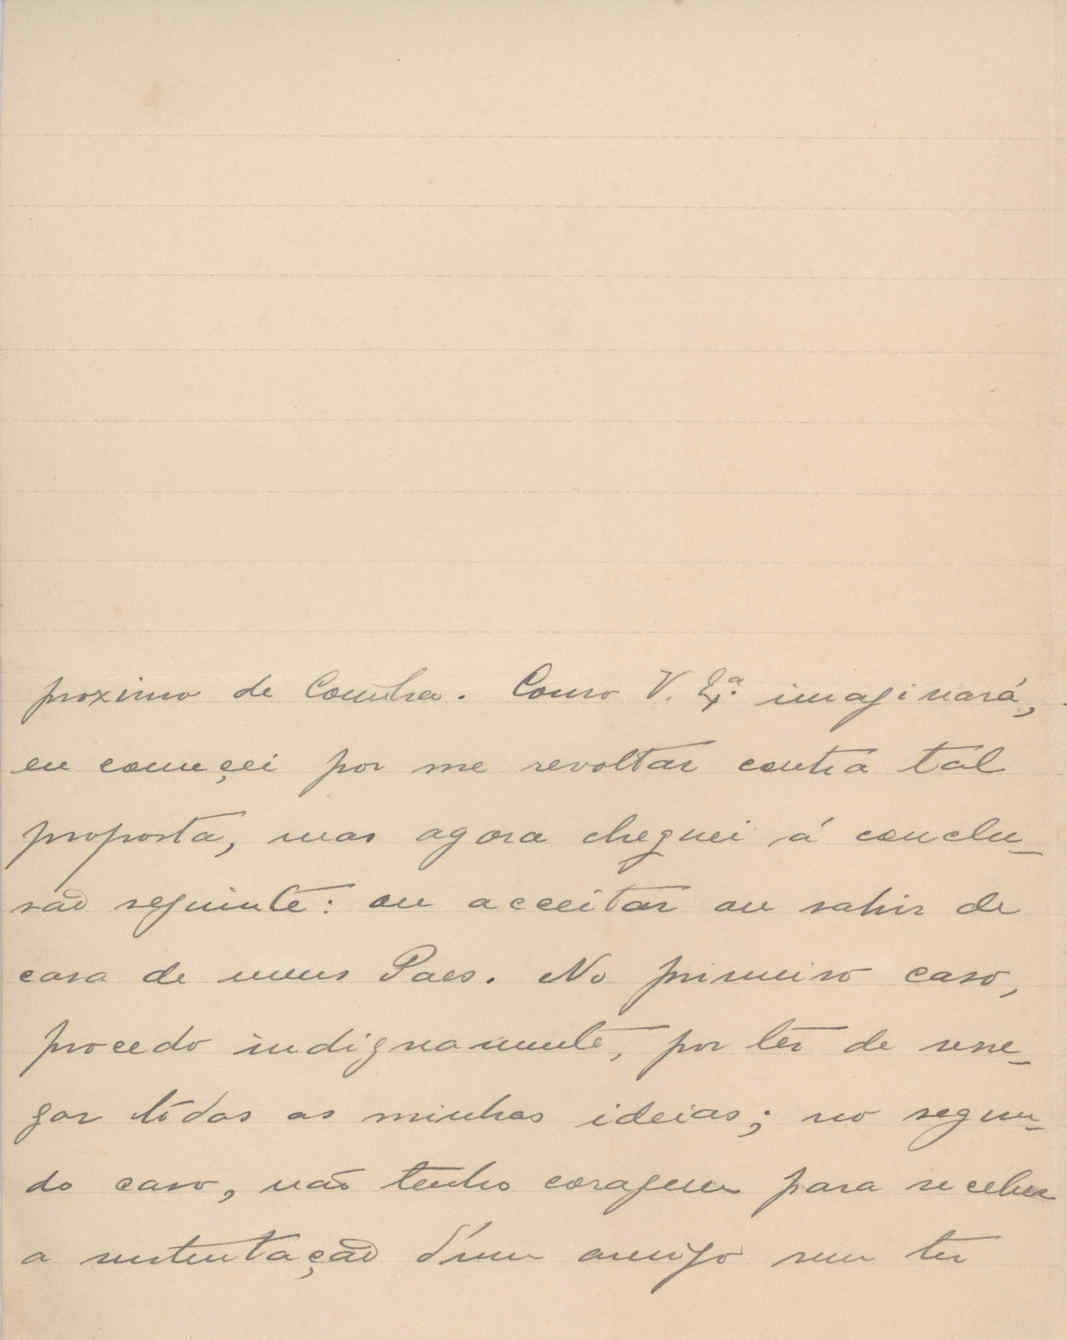 proximo de Coimbra. Como V. Ex.ª imaginará,
eu começei por me revoltar contra tal
proposta, mas agora cheguei á conclu-
são seguinte: ou acceitar ou sahir de
casa de meus Paes. No primeiro caso,
procedo indignamente, por ter de rene-
gar tôdas as minhas ideias; no segun-
do caso, não tenho coragem para receber
a sustentação d'um amigo sem ter